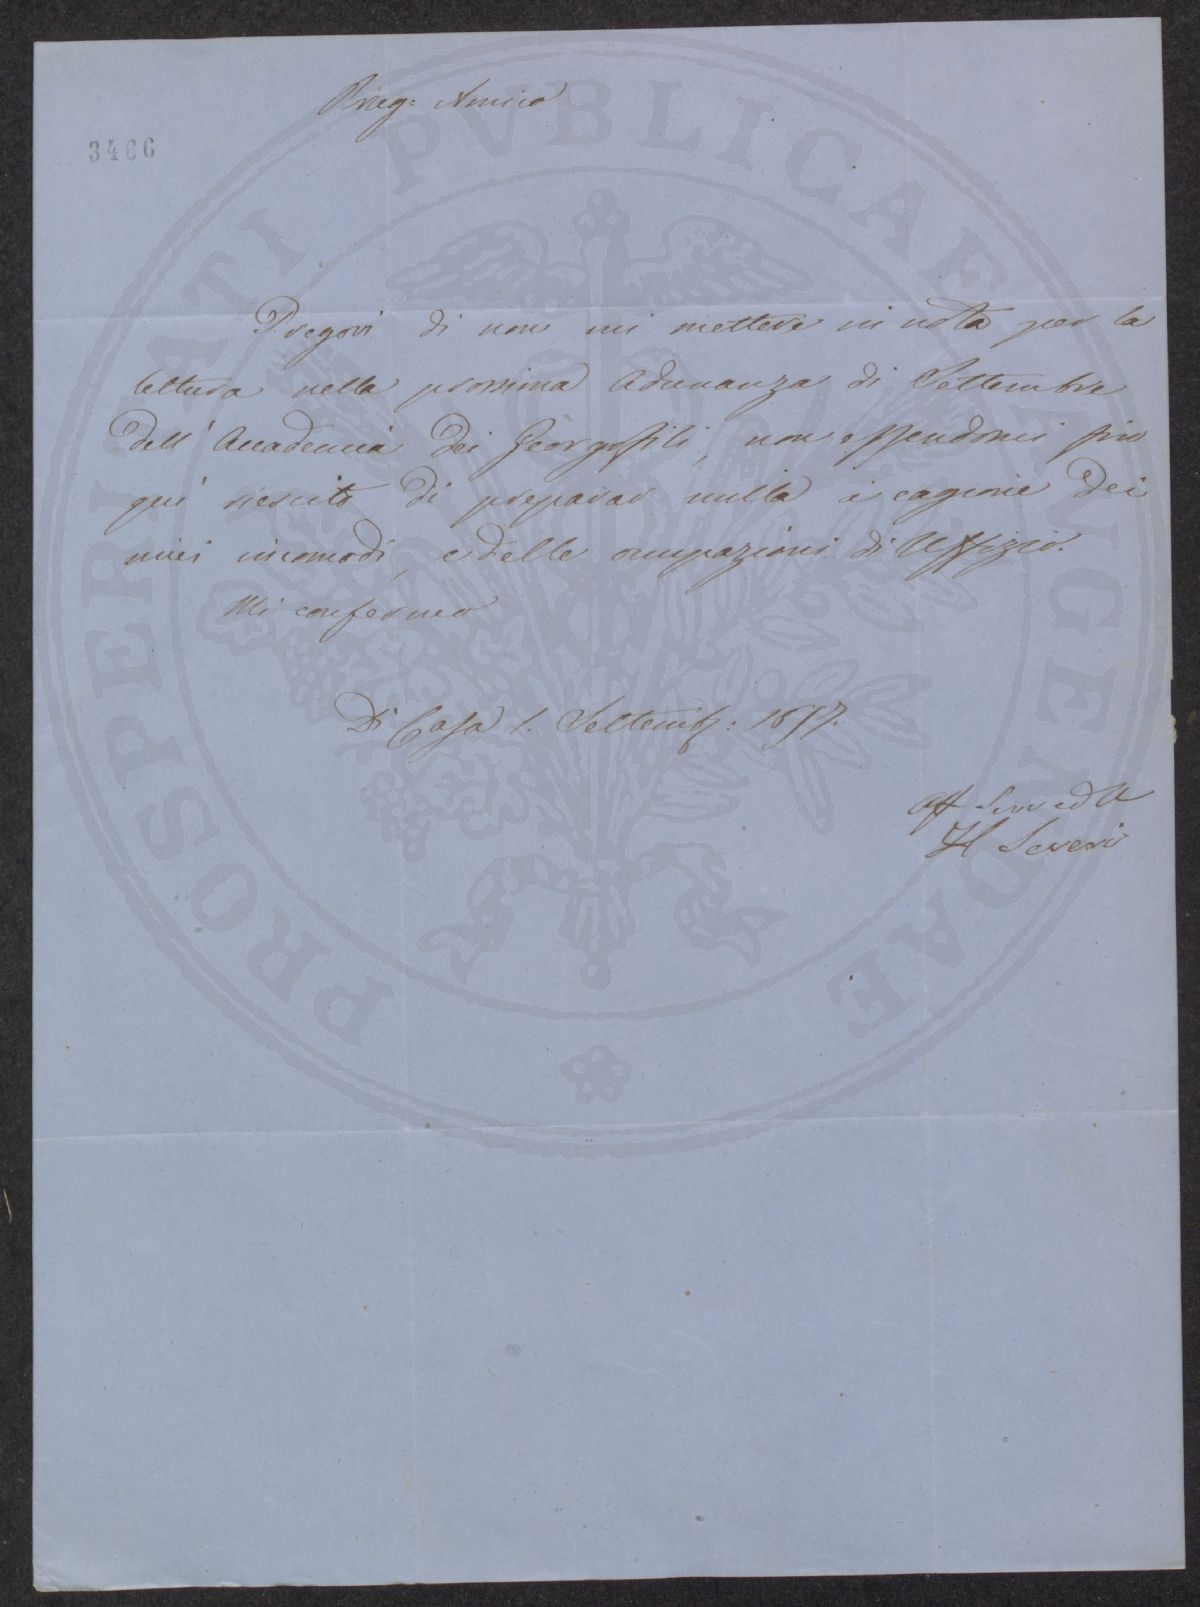 Preg: Amico
3466
Pregovi di non mi mettere in nota per la
lettura nella prossima Adunanza di Settembre
dell' Accademia dei Georgofili, non essendomi fin
quì riescito di preparar nulla a cagione dei
miei incomodi, e delle occupazioni di Uffizio.
Mi confermo
Di Casa 1. Settemb: 1857.
Aff Serv ed A
Severi
PROSPERITATI PVBLICAE AVGENDAE